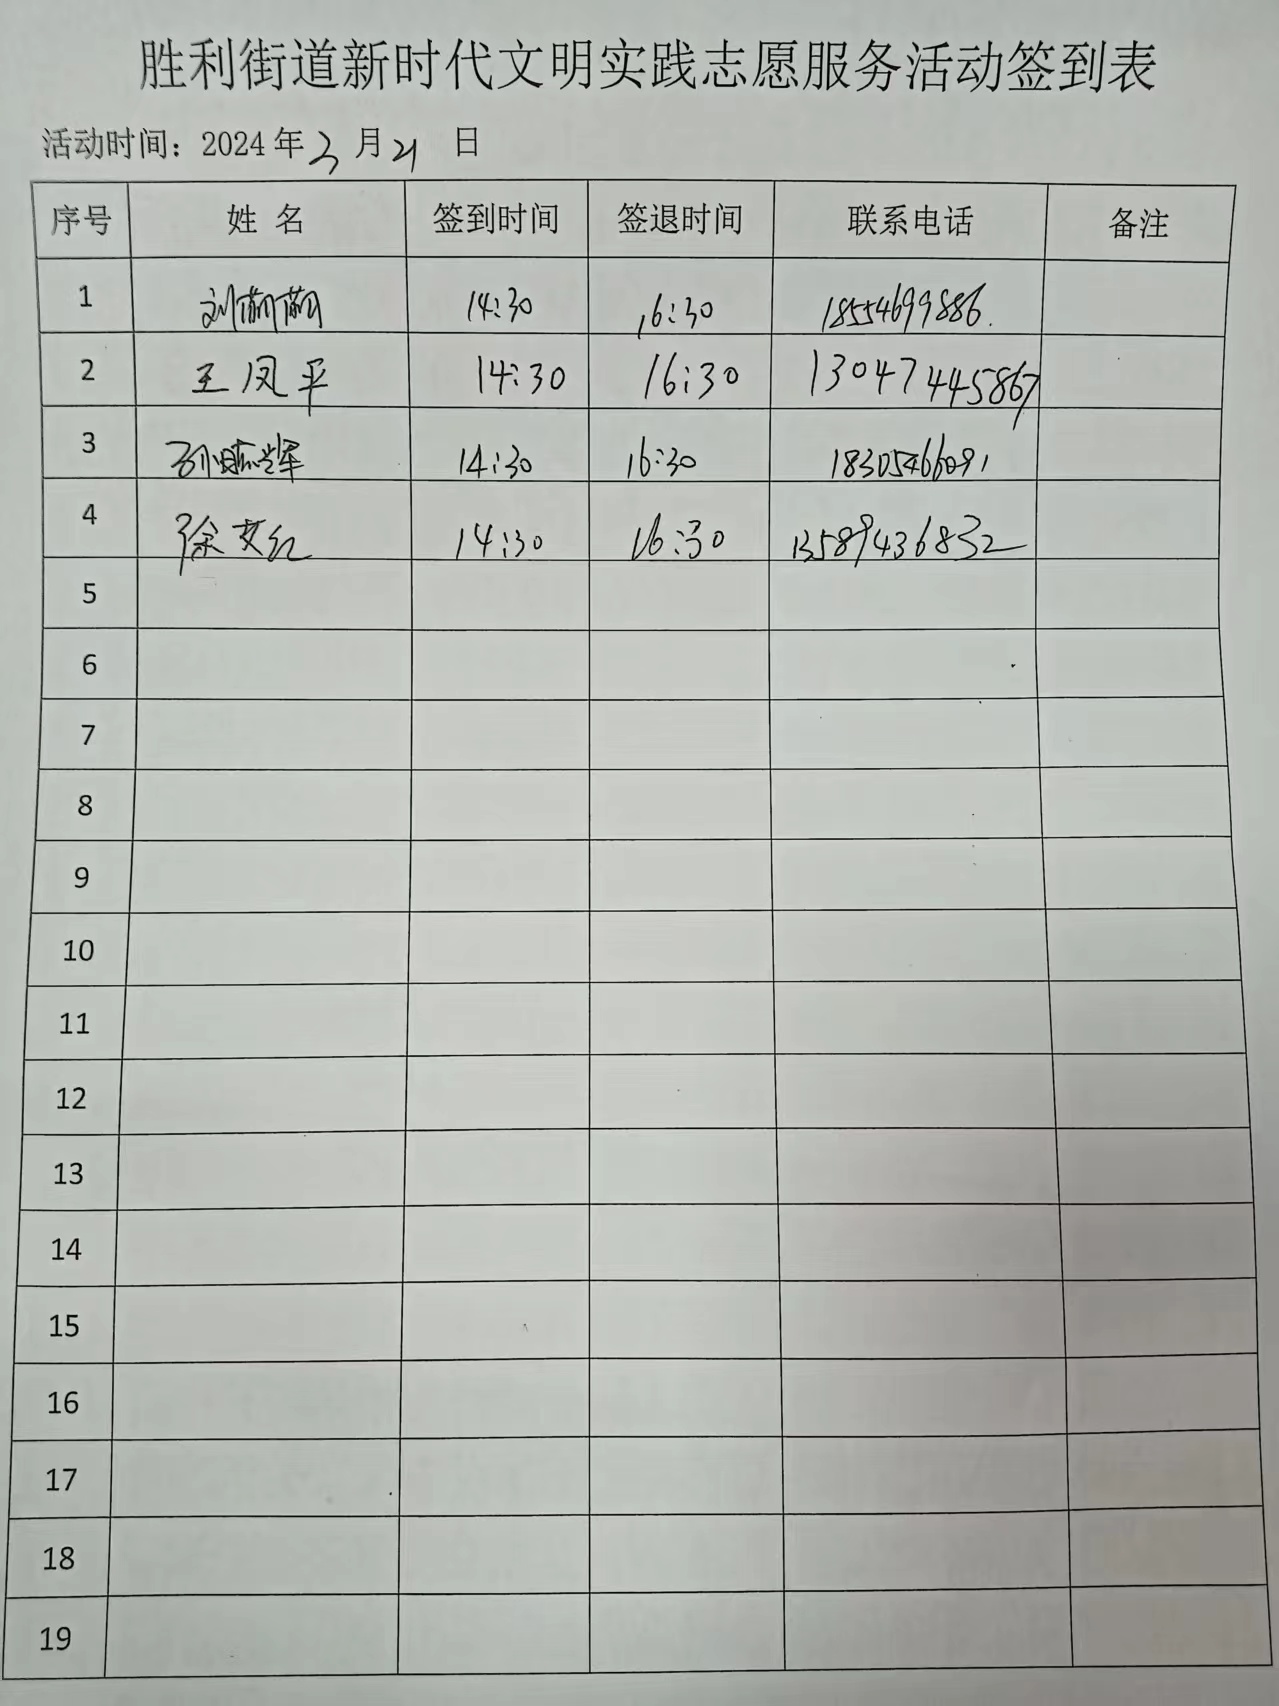 胜利街道新时代文明实践志愿服务活动签到表
活动时间：2024年3月21日
序号 姓 名 签到时间 签退时间 联系电话 备注
1 刘 14:30 16:30 18554699886.
2 王凤平 14:30 16:30 13047445867
3 孙 辉 14:30 16:30 18305466091
4 徐艾红 14:30 16:30 13589436832
5
6
7
8
9
10
11
12
13
14
15
16
17
18
19